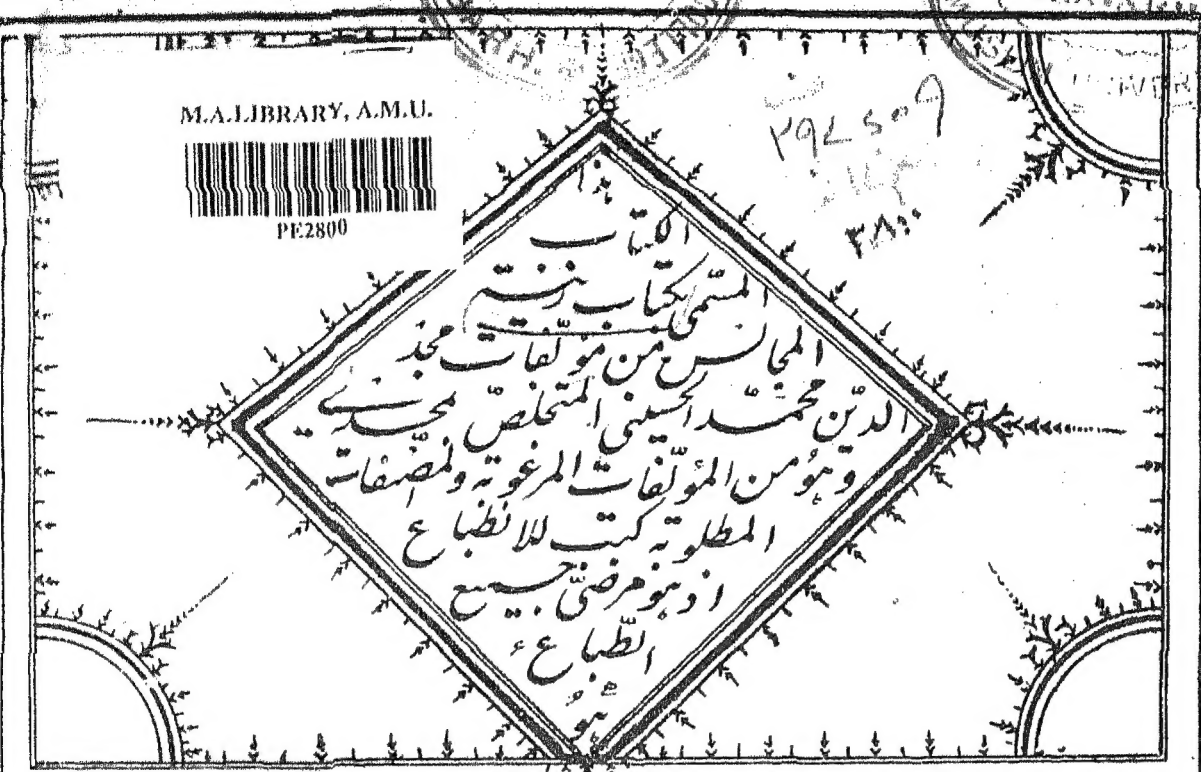 M.A.LIBRARY, A.M.U.
PE2800
۲۹۷۵۰۹
۲۸۰۰
هذا
الكتاب
المسمى بكتاب زينت
المجالس من مؤلفات مجد
الدين محمد الحسيني المتخلص بمجدي
وهو من المؤلفات المرغوبة والمصنفات
المطلوبة كتبت للانطباع
اذ هو مرضي جميع
الطباع
هو